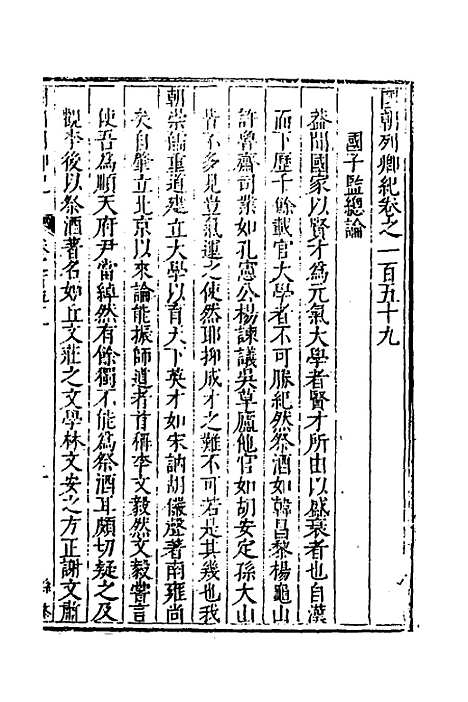 國朝列卿紀卷之一百五十九
國子監總論
葢聞國家以賢才爲元氣大學者賢才所由以盛衰者也自漢
而下歷千餘載官大學者不可勝紀然祭酒如韓昌黎楊龜山
許魯齋司業如孔憲公楊諫議吳草廬他官如胡安定孫大山
皆不多見豈氣運之使然耶抑成才之難不可若是其幾也我
朝崇儒重道建立大學以育天下英才如宋訥胡儼聲著南雍尚
矣自肇立北京以來論能振師道者首稱李文毅然文毅嘗言
使吾爲順天府尹當綽然有餘獨不能爲祭酒耳頗切疑之及
觀李後以祭酒著名如丘文莊之文學林文安之方正謝文肅